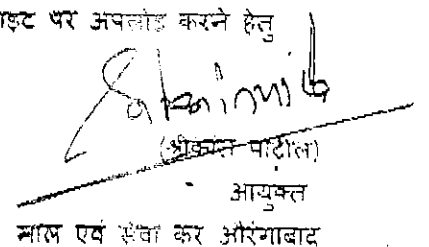 इट पर अपलोड करने हेतु
(श्रीकांत पाटील)
आयुक्त
माल एवं सेवा कर औरंगाबाद